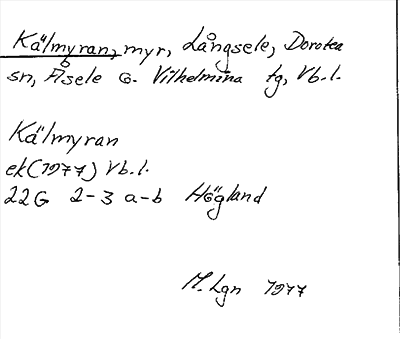 Kälmyran, myr, Långsele, Dorotea
sn, Åsele o. Vilhelmina tg, Vb.l.
Kälmyran
ek (1977) Vb.l.
22G 2-3 a-b Högland
M. Lgn 1977